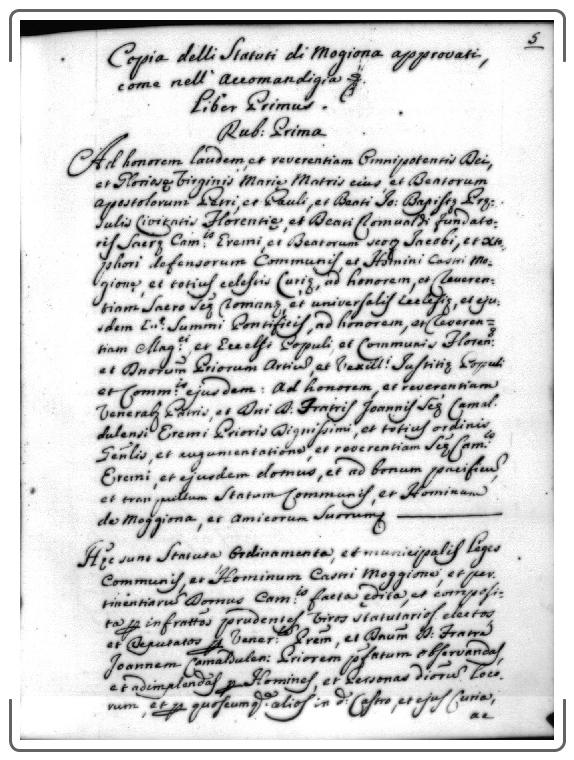 5
Copia delli Statuti di Mogiona approvati,
come nell' Accomandigia
Liber Primus.
Rub: Prima
Ad honorem laudem, et reverentiam Omnipotentis Dei,
et Gloriosę Virginis Marię Matris eius, et Beatorum
Apostolorum Petri, et Pauli, et Beati Jo: Baptistę Prę-
sulis Civitatis Florentię, et Beati Romualdi fundato-
ris Sacrę Cam: Eremi, et Beatorum Jacobi, et
phori defensorum Communis, et Homini Castri Mo-
gionę, et totius celestis Curię, ad honorem, et Reveren-
tiam Sacro Romanę, et universalis Ecclesię, et eju-
sdem Summi Pontificis, ad honorem, et Reveren-
tiam Mag:ci, et Excelsi Populi, et Communis Floren:
et Dnorum Priorum Artiu, et Vexill: Justitię Populi
et Comm:is ejusdem: Ad honorem, et reverentiam
Patris, et Dni D: Fratris Joannis Camal-
dulensi Eremi Prioris Dignissimi, et totius ordinis
Gen̄lis, et augumentatione, et reverentiam Cam:
Eremi, et ejusdem domus, et ad bonum pacificu,
et tranquillum Statum Communis, et Hominum
de Moggiona, et Amicorum Suorum
Hęc sunt Statuta Ordinamenta, et municipalis Leges
Communis, et Hominum Castri Moggionę, et per-
tinentiaru Domus Cam: facta ędita, et composi-
ta p infrattos prudentes Viros statutarios electos,
et Deputatos p Vener: Prem, et Dnum D: Fratrē
Joannem Camaldulen: Priorem observandas,
et adimplendas p Homines, et Personas dictoru Loco-
rum, et p quoscumq: alios in d: Castro, et ejus Curia,
ac